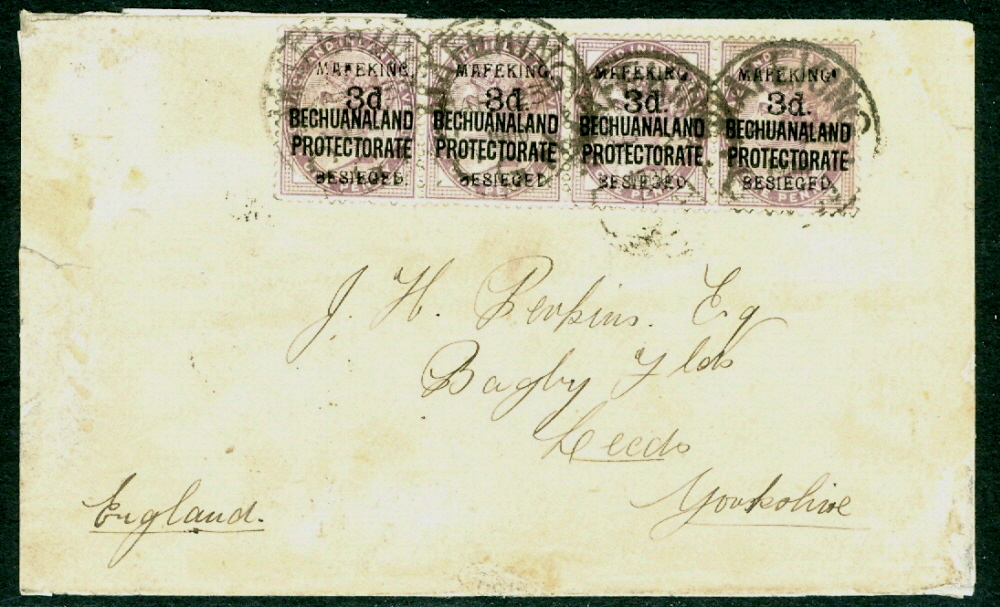 MAFEKING, MAFEKING, MAFEKING, MAFEKING,
3d. 3d. 3d. 3d.
BECHUANALAND BECHUANALAND BECHUANALAND BECHUANALAND
PROTECTORATE PROTECTORATE PROTECTORATE PROTECTORATE
BESIEGED. BESIEGED. BESIEGED. BESIEGED.
J. H. Perkins. Esq
Bagby
Leeds
Yorkshire
England.